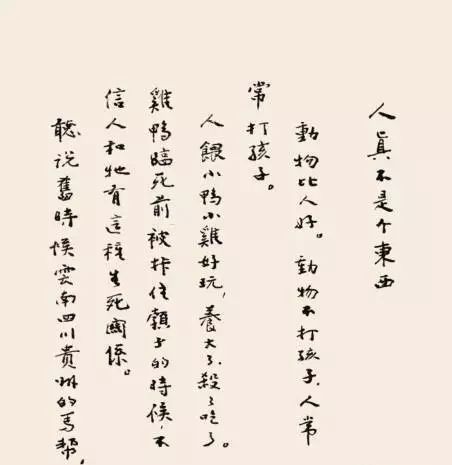 人真不是个東西
動物比人好。動物不打孩子、人常
常打孩子。
人餵小鸭小雞好玩，養大了、殺了吃了。
雞鸭臨死前被卡住頸子的時候，不
信人和牠有這種生死關係。
聽说舊時候雲南四川貴州的馬幫，